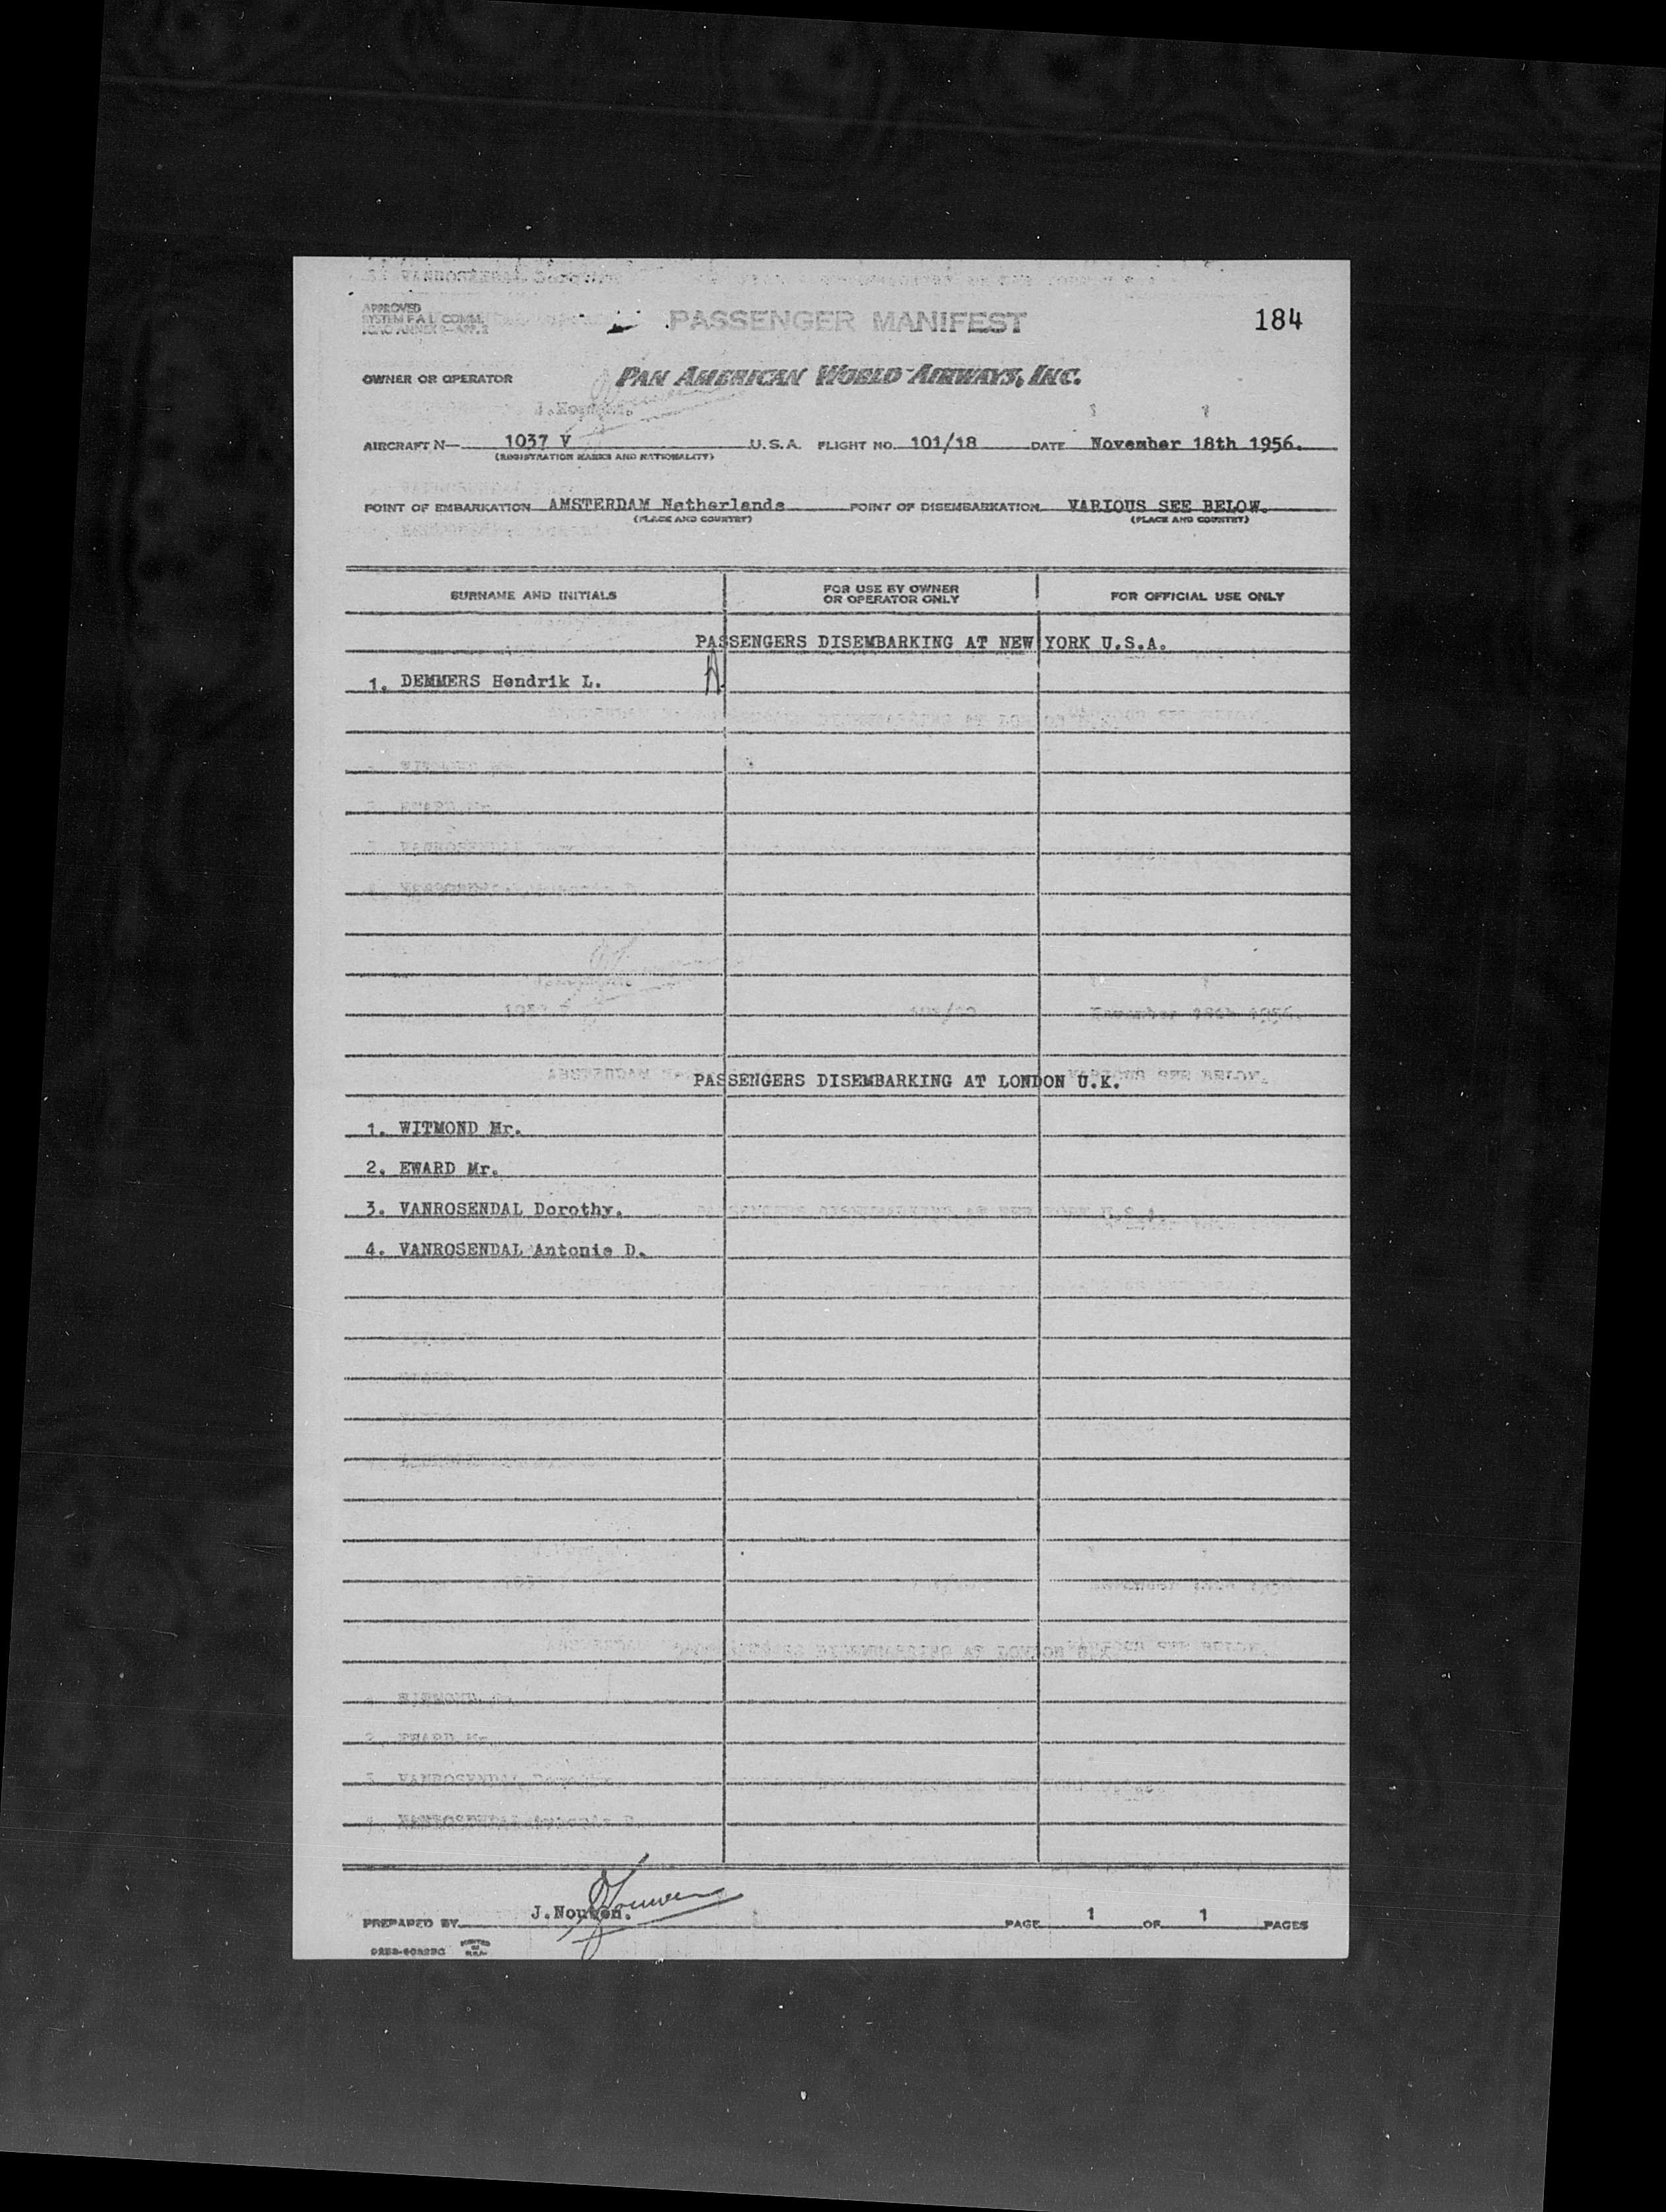 APPROVED
SYSTEM F A L COMM.
ICAO ANNEX 9—APP. 2
PASSENGER MANIFEST
184
OWNER OR OPERATOR PAN AMERICAN WORLD AIRWAYS, INC.
AIRCRAFT N— 1037 V U.S.A. FLIGHT NO. 101/18 DATE November 18th 1956.
(REGISTRATION MARKS AND NATIONALITY)
POINT OF EMBARKATION AMSTERDAM Netherlands POINT OF DISEMBARKATION VARIOUS SEE BELOW.
(PLACE AND COUNTRY) (PLACE AND COUNTRY)
SURNAME AND INITIALS FOR USE BY OWNER OR OPERATOR ONLY FOR OFFICIAL USE ONLY
PASSENGERS DISEMBARKING AT NEW YORK U.S.A.
1. DEMMERS Hendrik L.
PASSENGERS DISEMBARKING AT LONDON U.K.
1. WITMOND Mr.
2. EWARD Mr.
3. VANROSENDAL Dorothy.
4. VANROSENDAL Antonie D.
PREPARED BY J.Nouwen. PAGE 1 OF 1 PAGES
PRINTED IN U.S.A.